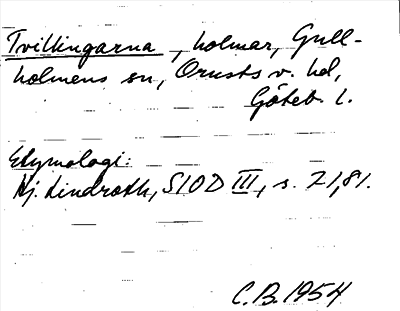 Tvillingarna, holmar, Gull-
holmens sn, Orusts v. hd,
Göteb. l.
Etymologi:
Hj. Lindroth, SIOD III, s. 21, 81.
C.B. 1954